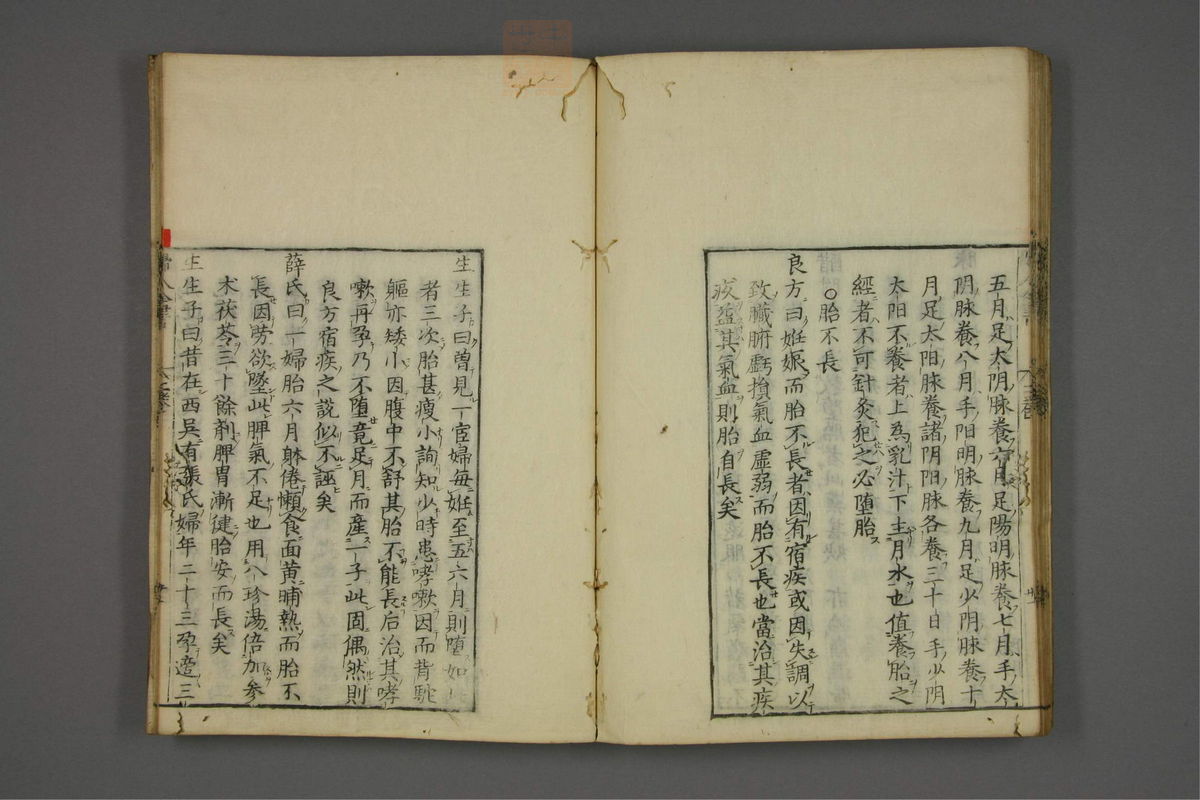 五月足太阴脉養六月足陽明脉養七月手太
阴脉養八月手阳明脉養九月足少阴脉養十
月足太阳脉養諸阴阳脉各養三十日手少阴
太阳不養者上爲乳汁下主月水也值養胎之
經者不可針灸犯之必堕胎
〇胎不長
良方曰妊娠而胎不長者因有宿疾或因失調以
致臟腑虧損氣血虛弱而胎不長也當治其疾
疾益其氣血則胎自長矣
生生子曰曽見一宦婦每姙至五六月則堕如
者三次胎甚瘦小詢知少時患哮嗽因而背駝
軀亦矮小因腹中不舒其胎不能長后治其哮
嗽再孕乃不堕竟足月而産一子此固偶然則
良方宿疾之説似不誣矣
薛氏曰一婦胎六月躰倦懶食面黄晡熱而胎不
長因劳欲墜此脾氣不足也用八珍湯倍加参
术茯苓三十餘剤脾胃漸健胎安而長矣
生生子曰昔在西吳有張氏婦年二十三孕澬三